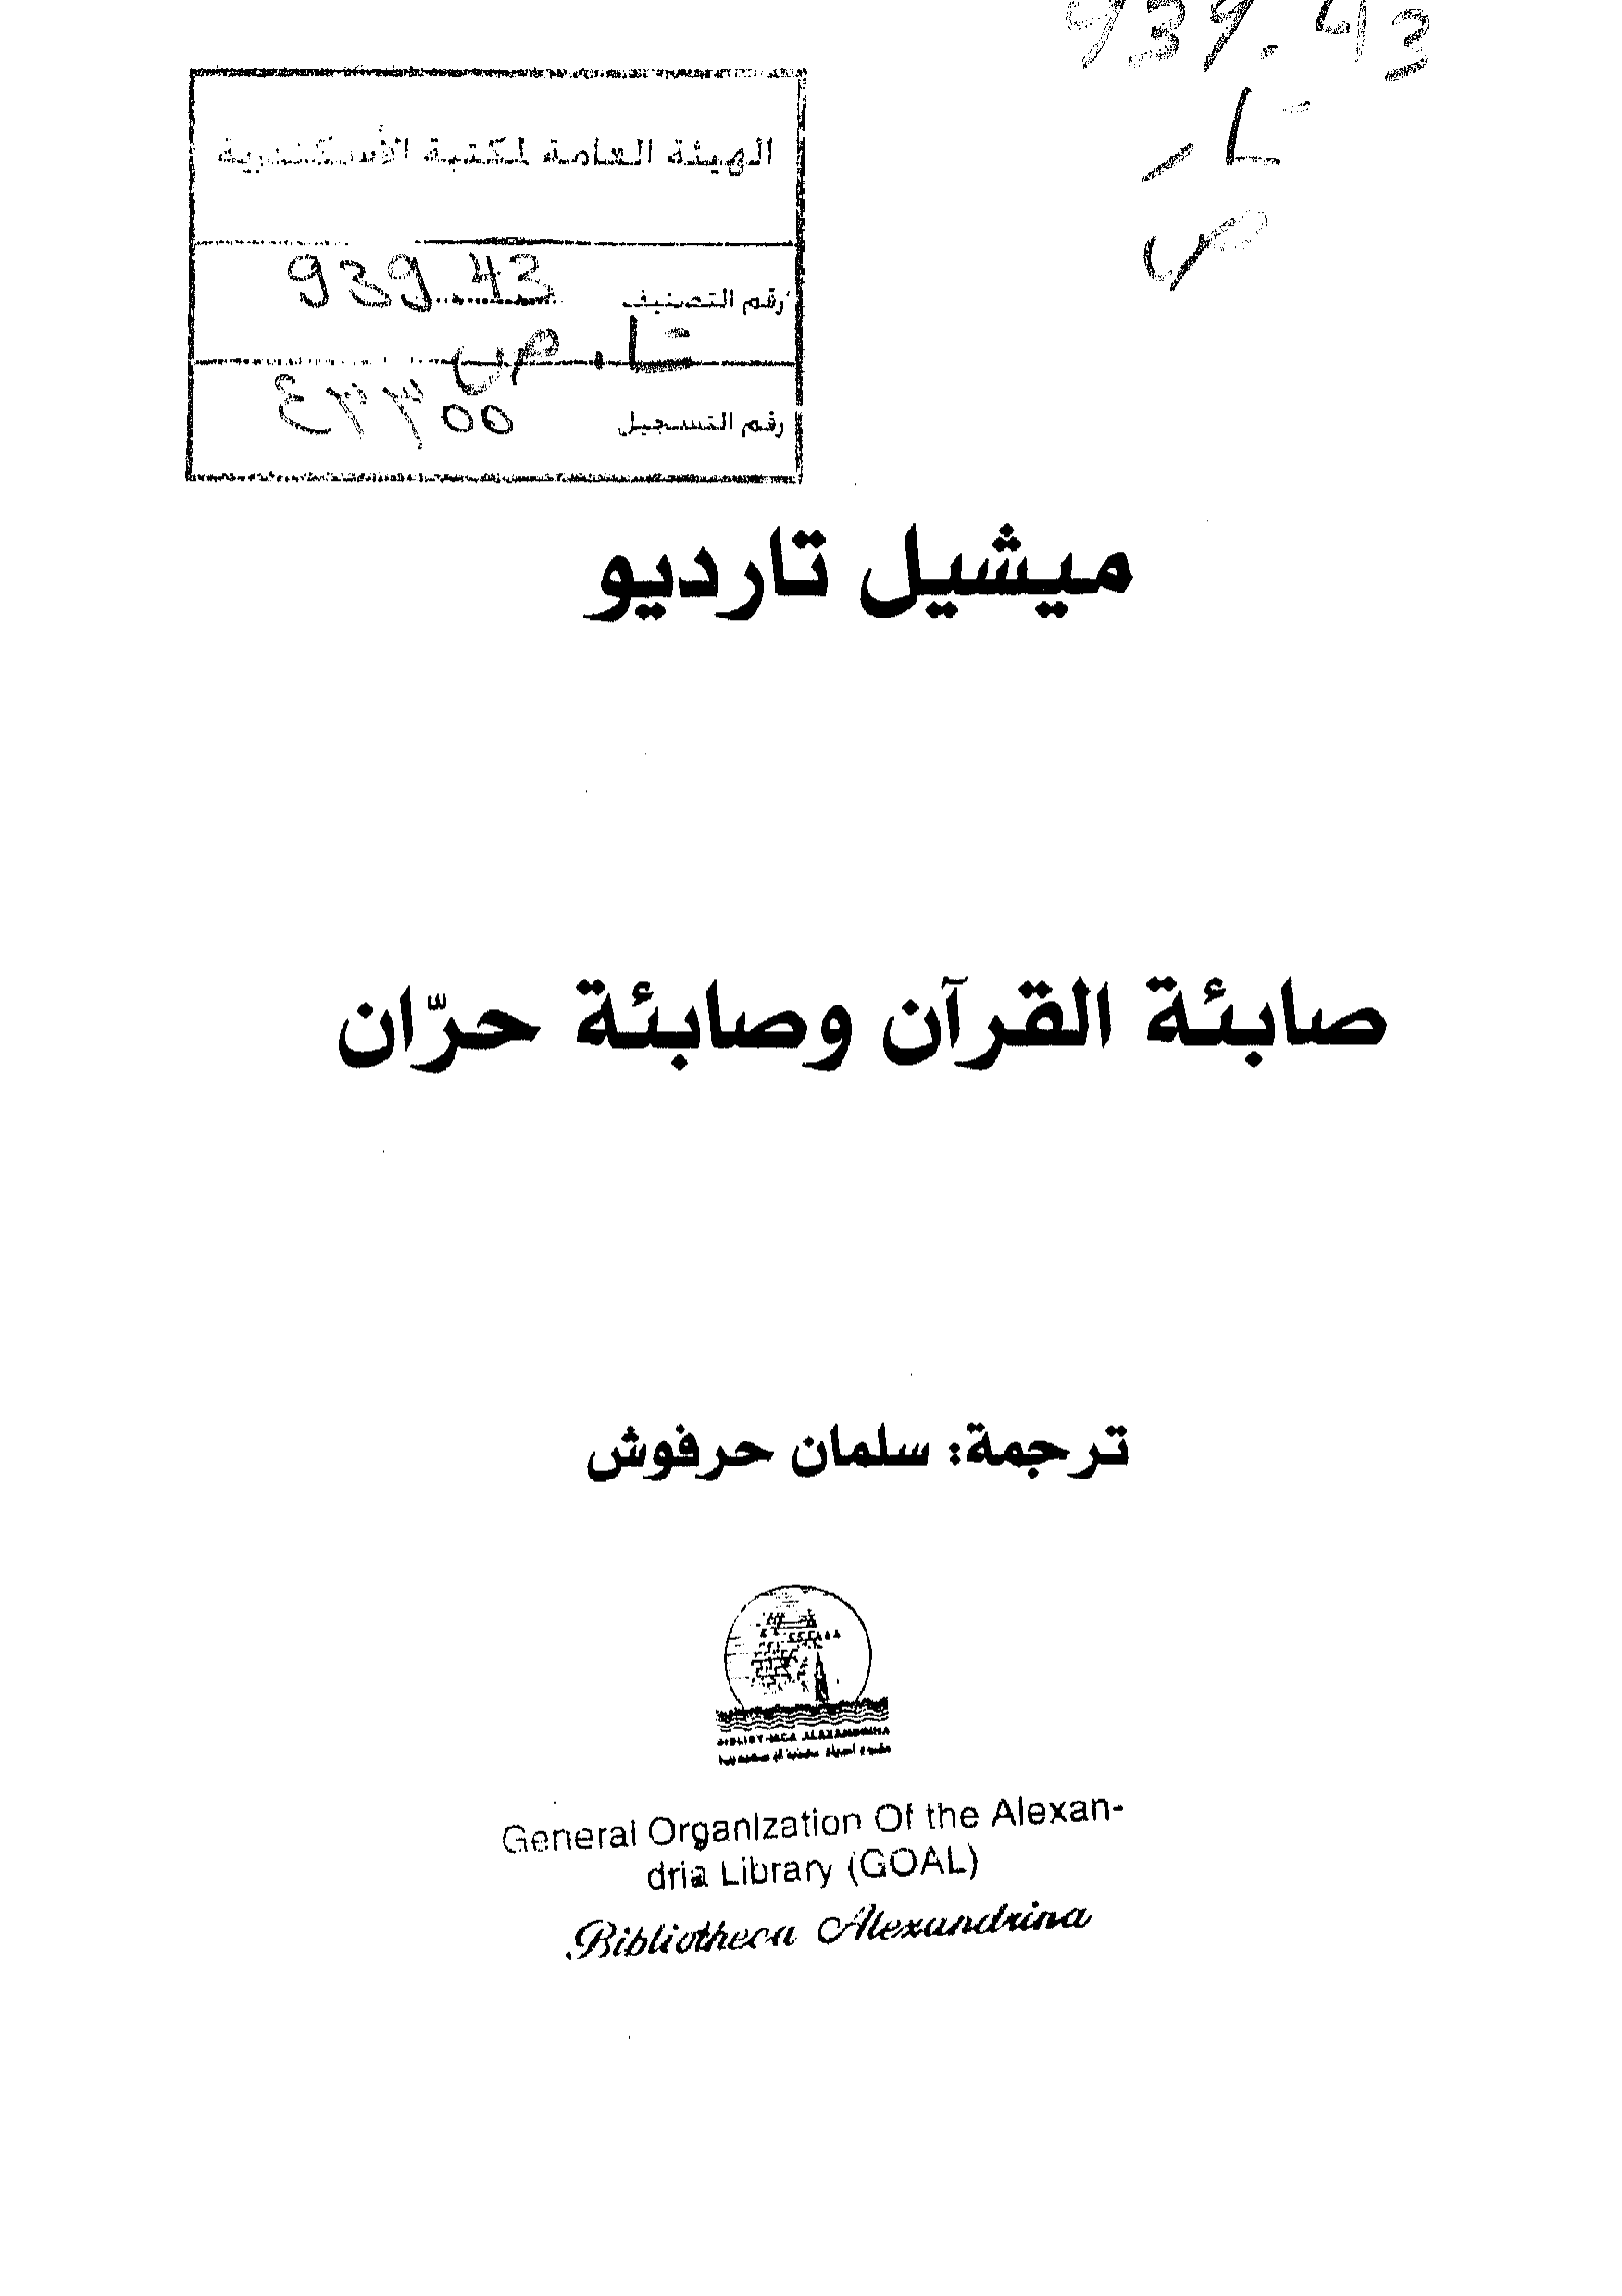 939.43
تا.
ص
الهيئة العامة لمكتبة الأسكندرية
رقم التصنيف 939.43
تا. ص
رقم التسجيل ٤٣٣٥٥
ميشيل تارديو
صابئة القرآن وصابئة حرّان
ترجمة: سلمان حرفوش
General Organization Of the Alexan-
dria Library (GOAL)
Bibliotheca Alexandrina